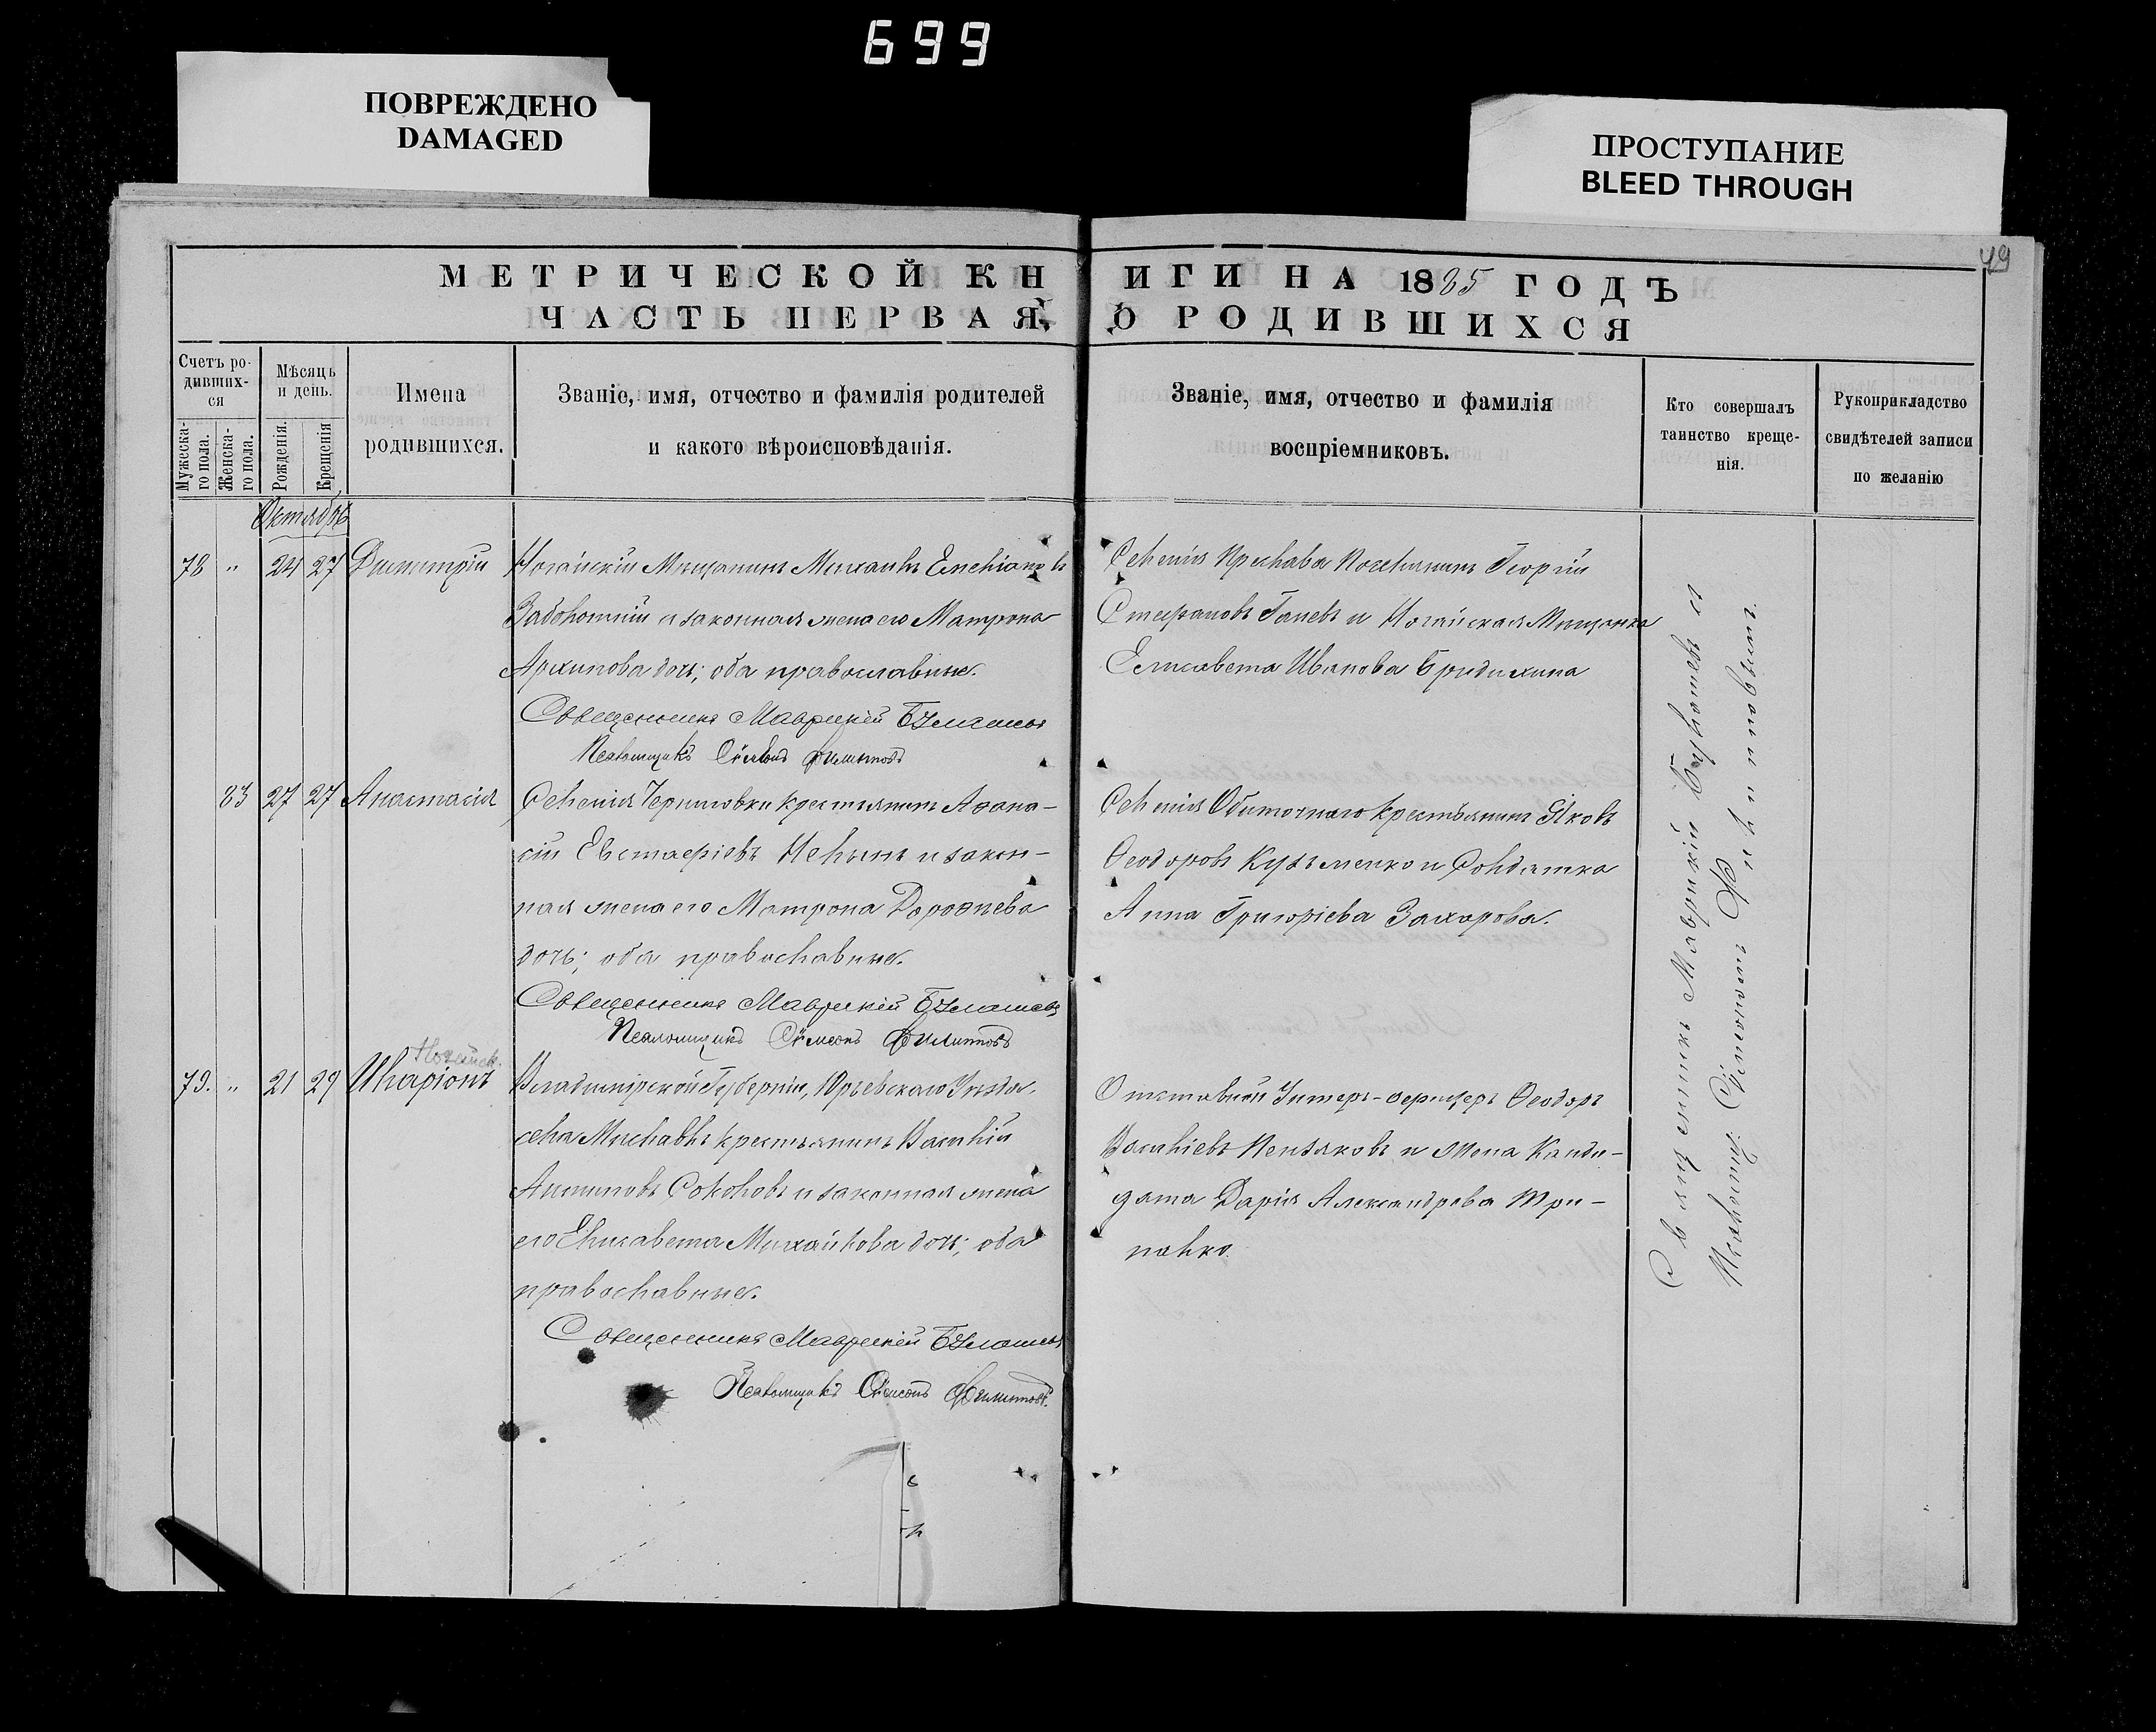 699
ПОВРЕЖДЕНО
DAMAGED
ПРОСТУПАНИЕ
BLEED THROUGH
49
МЕТРИЧЕСКОЙ КНИГИ НА 1885 ГОДЪ
ЧАСТЬ ПЕРВАЯ, О РОДИВШИХСЯ
Счетъ ро-
дивших-
ся
Мужеска-
го пола.
Женска-
го пола.
Мѣсяцъ
и день.
Рожденія.
Крещенія
Имена
родившихся.
Званіе, имя, отчество и фамилія родителей
и какого вѣроисповѣданія.
Званіе, имя, отчество и фамилія
воспріемниковъ.
Кто совершалъ
таинство креще-
нія.
Рукоприкладство
свидѣтелей записи
по желанію
Октябрь
78 " 24 27 Димитрій
Ногайскій Мѣщанинъ Михаилъ
и законная жена его Матрона
Архипова дочь; оба православные.
Священникъ Маврикій
Псаломщикъ Сѵмеонъ Филипповъ
Селенія Преслава Поселянинъ Георгій
Стефановъ Ганевъ и Ногайская Мѣщанка
Елисавета Иванова
83 27 27 Анастасія
Селенія Черниговки крестьянинъ Аѳана-
сій Евстафіевъ и закон-
ная жена его Матрона Дороѳѣева
дочь; оба православные.
Священникъ Маврикій
Псаломщикъ Сѵмеонъ Филипповъ
Селенія Обиточнаго крестьянинъ Яковъ
Ѳеодоровъ Кузьменко и Солдатка
Анна Григоріева Захарова.
Ногайск.
79. " 21 29 Иларіонъ
Владимірской Губерніи, Юрьевскаго Уѣзда,
села крестьянинъ Василій
Соколовъ и законная жена
его Елисавета Михайлова дочь; оба
православные.
Священникъ Маврикій
Псаломщикъ Сѵмеонъ Филипповъ.
Отставной Унтеръ-офицеръ Ѳеодоръ
Василіевъ и жена Канди-
дата Дарія Александрова Три-
полко.
Священникъ Маврикій и
Псаломщ. Сѵмеонъ Филипповымъ.